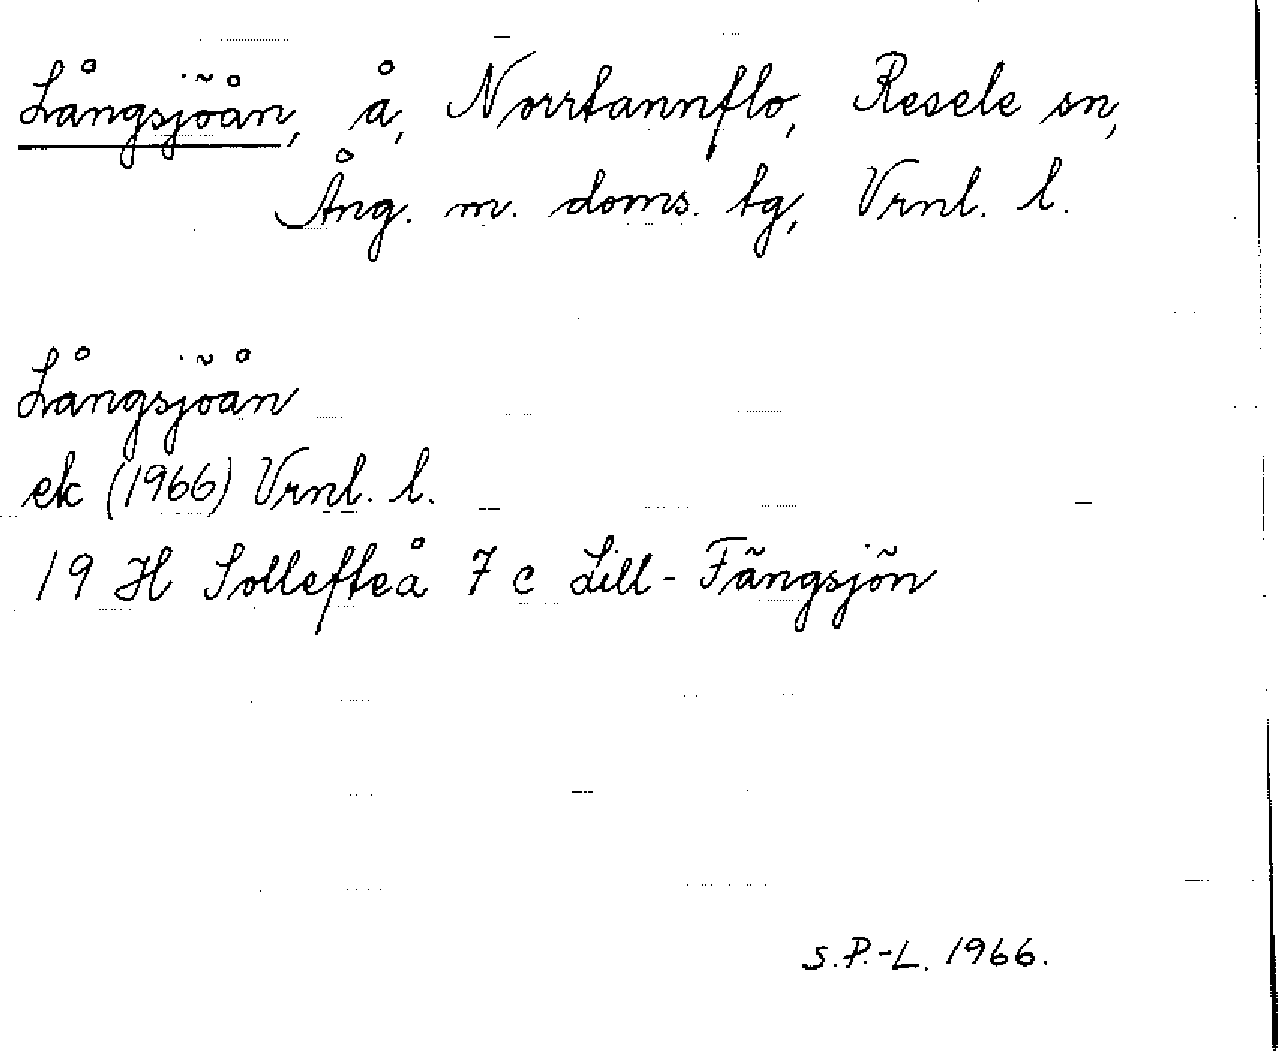 Långsjöån, å, Norrtannflo, Resele sn,
Ång. m. doms. tg, Vrnl. l.
Långsjöån
ek (1966) Vrnl. l.
19 H Sollefteå 7 c Lill-Fängsjön
S.P.-L. 1966.